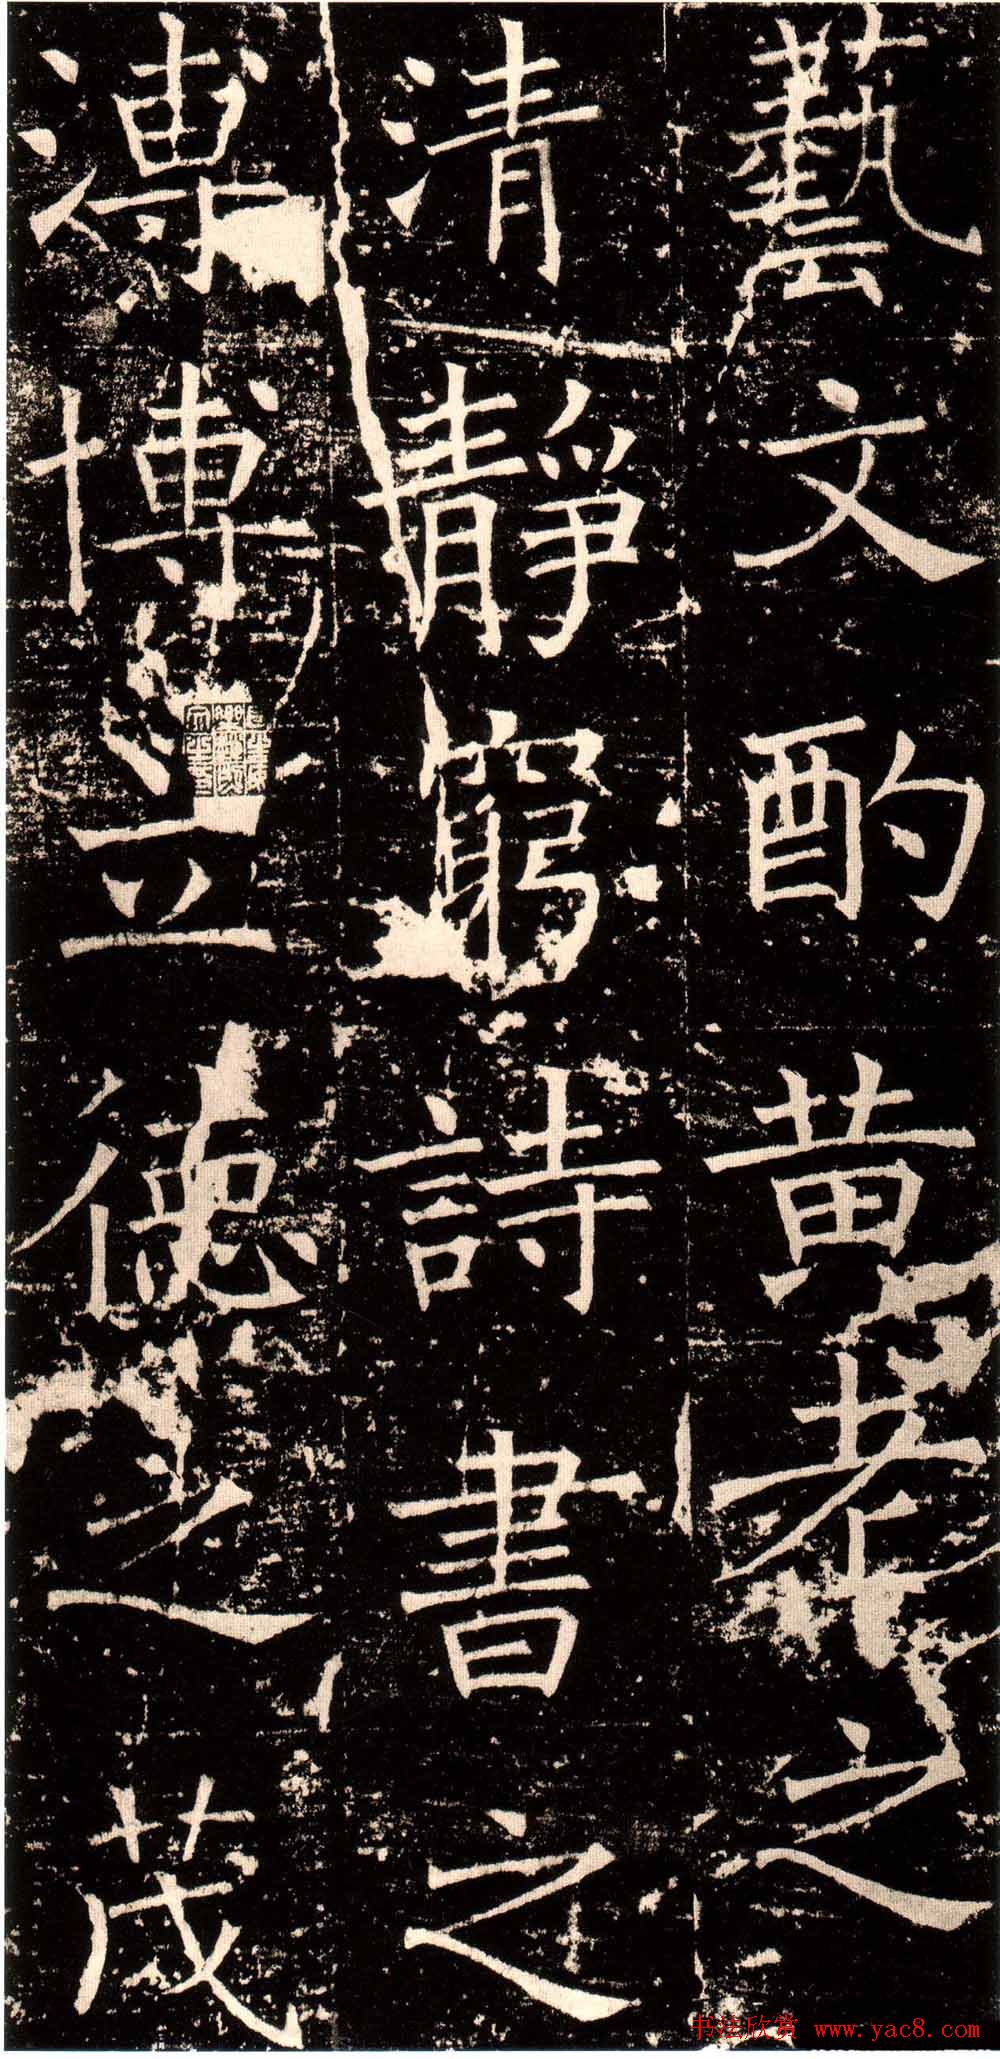 藝文酌黄老之
清靜窮詩書之
溥博立德之茂
书法欣赏 www.yac8.com